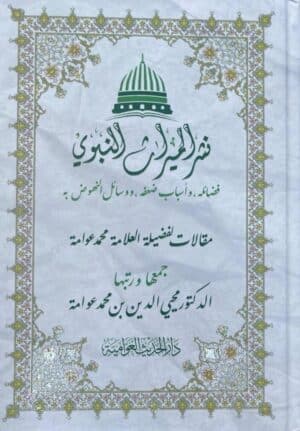 نشر الميراث النبوي
فضائله، وأسباب ضعفه، ووسائل النهوض به
مقالات لفضيلة العلامة محمد عوامة
جمعها ورتبها
الدكتور محيي الدين بن محمد عوامة
دار الحديث العوامية